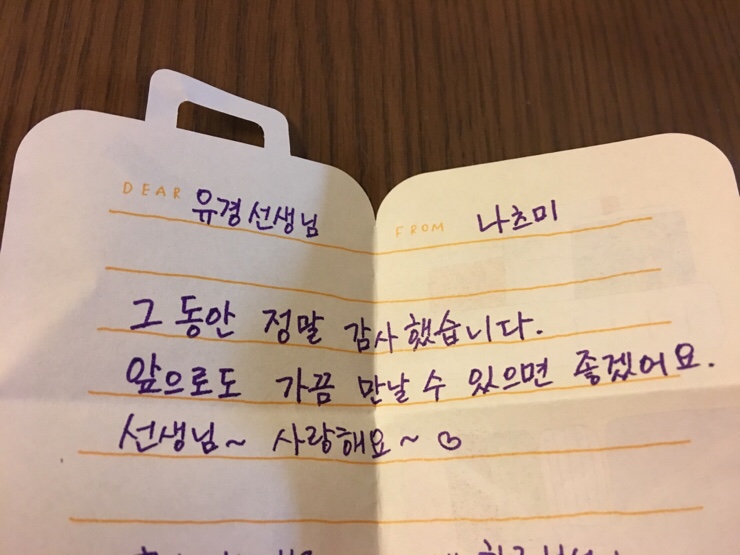 DEAR 유경선생님
FROM 나츠미
그 동안 정말 감사했습니다.
앞으로도 가끔 만날 수 있으면 좋겠어요.
선생님~ 사랑해요~ ♡